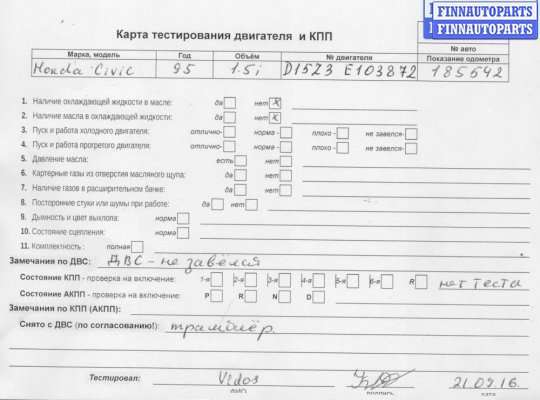 FINNAUTOPARTS
FINNAUTOPARTS
Карта тестирования двигателя и КПП
№ авто
Марка, модель Год Объём № двигателя Показание одометра
Honda Civic 95 1.5i D15Z3 E103872 185542
1. Наличие охлаждающей жидкости в масле: да нет x
2. Наличие масла в охлаждающей жидкости: да нет x
3. Пуск и работа холодного двигателя: отлично- норма - плохо - не завелся-
4. Пуск и работа прогретого двигателя: отлично- норма - плохо - не завелся-
5. Давление масла: есть нет
6. Картерные газы из отверстия масляного щупа: да нет
7. Наличие газов в расширительном бачке: да нет
8. Посторонние стуки или шумы при работе: да нет
9. Дымность и цвет выхлопа: норма
10. Состояние сцепления: норма
11. Комплектность : полная
Замечания по ДВС: ДВС - не завёлся
Состояние КПП - проверка на включение: 1-я 2-я 3-я 4-я 5-я 6-я R нет теста
Состояние АКПП - проверка на включение: P R N D
Замечания по КПП (АКПП):
Снято с ДВС (по согласованию!): трамблёр.
Тестировал: Vldos 21.09.16.
ФИО подпись дата